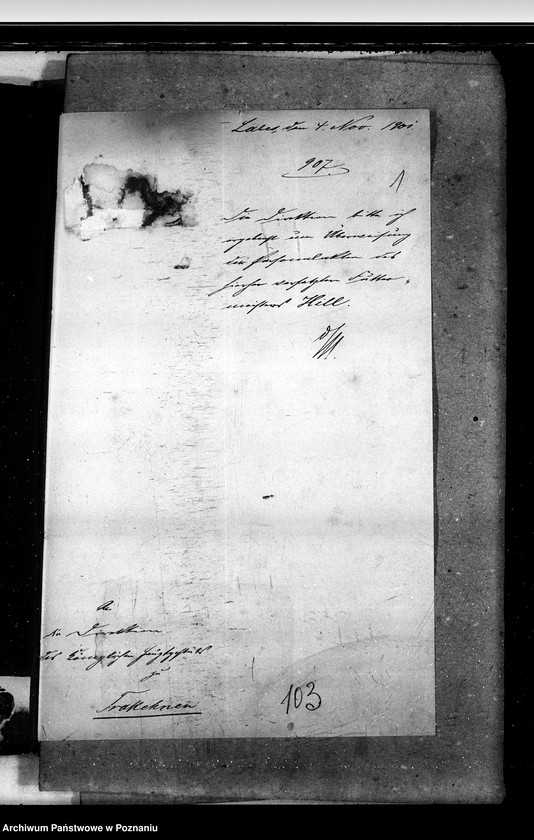 Labes, den 4. Nov. 1901.
907.
1
Die Direktion bitte ich
ergebenst um Überweisung
der Personalakten des
hierher versetzten Futter-
meisters Hell.
An
die Direktion
des Königlichen Hauptgestüts
zu
Trakehnen
103
Archiwum Państwowe w Poznaniu